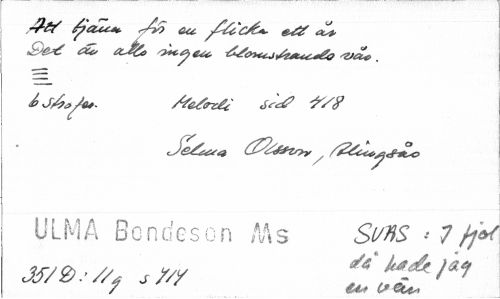 Att tjäna för en flicka ett år
Det är alls ingen blomstrande vår.
6 strofer. Melodi sid 418
Selma Olsson, Alingsås
ULMA Bondeson Ms
351 D: 11g s 414
SVAS : I fjol
då hade jag
en vän